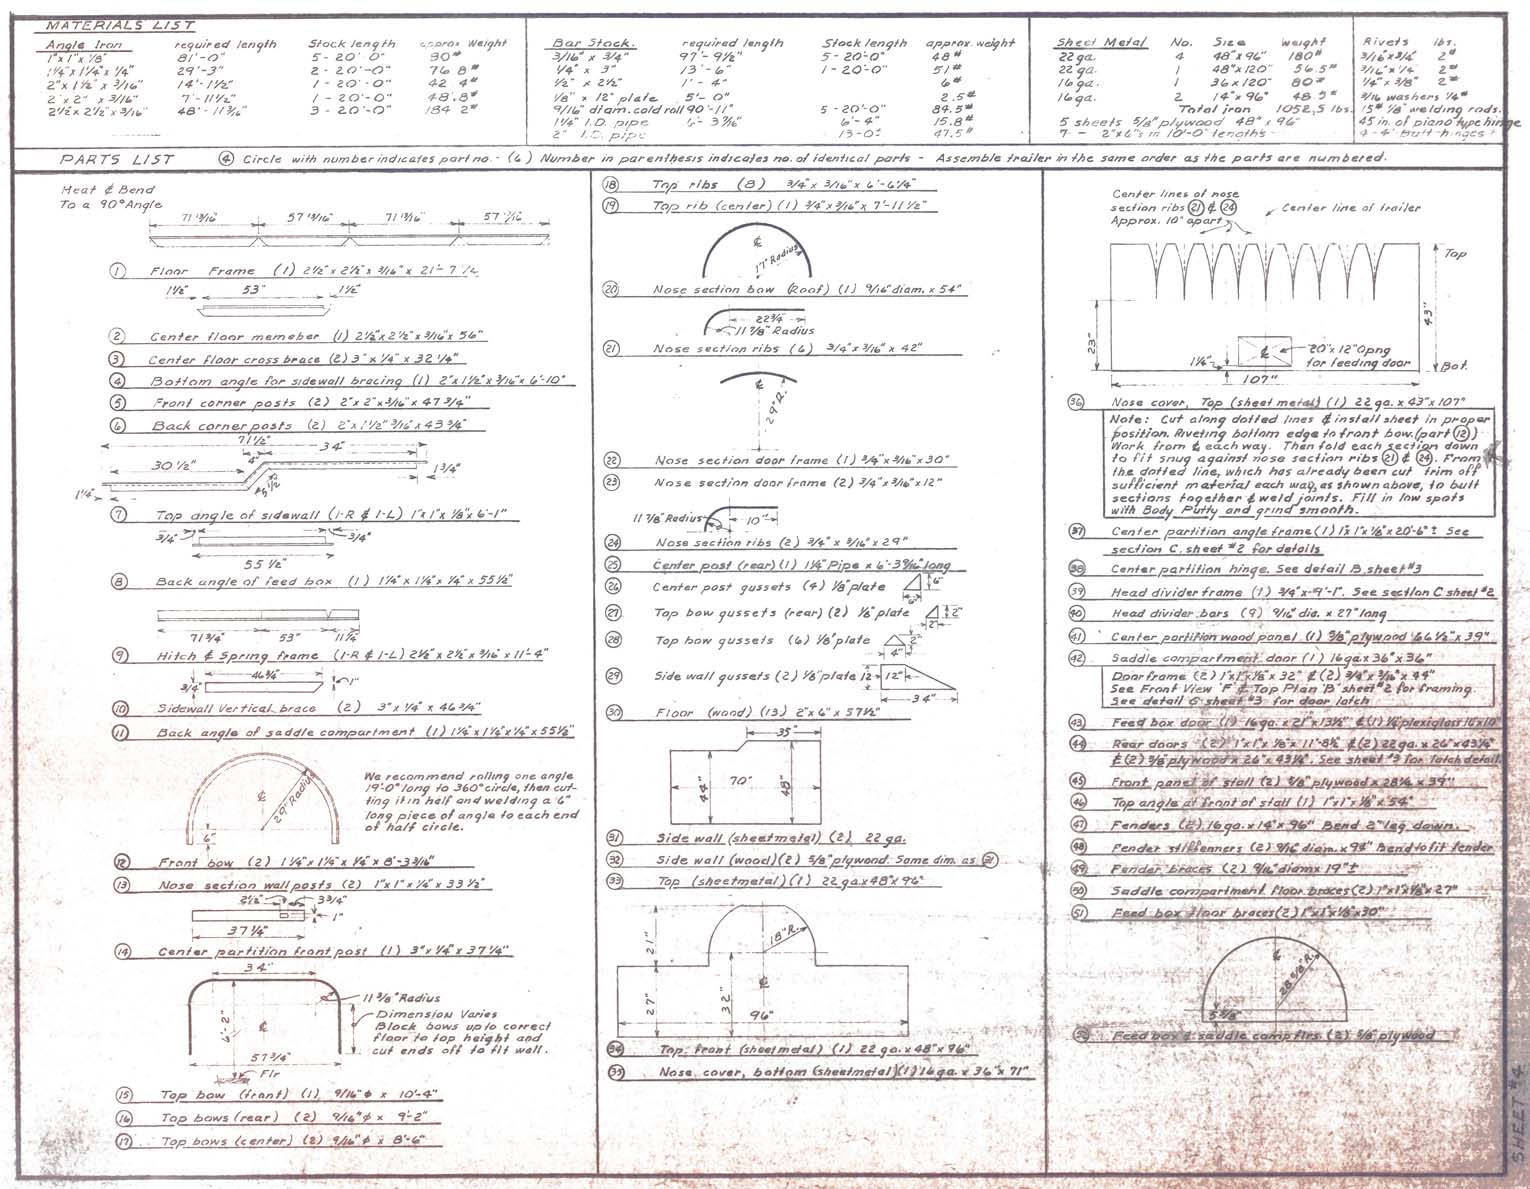 MATERIALS LIST
Angle Iron required length Stock length approx weight
1"x1"x1/8" 81'-0" 5-20'-0" 90#
1 1/4"x1 1/4"x1/4" 29'-3" 2-20'-0" 76.8#
2"x1 1/2"x3/16" 14'-1 1/2" 1-20'-0" 42.4#
2"x2"x3/16" 7'-11 1/2" 1-20'-0" 48.8#
2 1/2"x2 1/2"x3/16" 48'-11 3/16" 3-20'-0" 184.2#
Bar Stock. required length Stock length approx. weight
3/16" x 3/4" 97'-9 1/2" 5-20'-0" 48#
1/4" x 3" 13'-6" 1-20'-0" 51#
1/2" x 2 1/2" 1'-4" 6#
1/8" x 12" plate 5'-0" 2.5#
9/16" diam. cold roll 90'-11" 5-20'-0" 84.5#
1 1/4" I.D. pipe 6'-3 9/16" 6'-4" 15.8#
2" I.D. pipe 13-0± 47.5"
Sheet Metal No. Size weight
22 ga. 4 48"x96" 180#
22 ga. 1 48"x120" 56.5#
16 ga. 1 36x120" 80#
16 ga. 2 14"x96" 48.5#
Total iron 1052.5 lbs.
5 sheets 5/8" plywood 48"x96"
7 - 2"x6"s in 10'-0" lengths
Rivets lbs.
3/16"x3/4" 2#
3/16"x1/4 2#
1/4"x3/8" 2#
3/16 washers 1/4#
15# 1/8" welding rods.
45 in. of piano type hinge
4-4" butt hinges
PARTS LIST (4) Circle with number indicates part no. - (6) Number in parenthesis indicates no. of identical parts - Assemble trailer in the same order as the parts are numbered.
Heat & Bend
To a 90° Angle
71 13/16" 57 13/16" 71 13/16" 57 1/16"
1 Floor Frame (1) 2 1/2"x2 1/2"x3/16"x21'-7 1/4
1 1/2" 53" 1 1/2"
2 Center floor memeber (1) 2 1/2"x2 1/2"x3/16"x56"
3 Center floor cross brace (2) 3"x1/4"x32 1/4"
4 Bottom angle for sidewall bracing (1) 2"x1 1/2"x3/16"x6'-10"
5 Front corner posts (2) 2"x2"x3/16"x47 3/4"
6 Back corner posts (2) 2"x1 1/2"3/16"x43 3/4"
71 1/2"
4" 34"
30 1/2" 1 3/4"
1 1/4"
7 Top angle of sidewall (1-R & 1-L) 1"x1"x1/8"x6'-1"
3/4" 3/4"
55 1/2"
8 Back angle of feed box (1) 1 1/4"x1 1/4"x1/4"x55 1/2"
71 3/4" 53" 11 1/4"
9 Hitch & Spring frame (1-R & 1-L) 2 1/2"x2 1/2"x3/16"x11'-4"
46 3/4"
3/4" 1"
10 Sidewall Vertical brace (2) 3"x1/4"x46 3/4"
11 Back angle of saddle compartment (1) 1 1/4"x1 1/4"x1/4"x55 1/2"
℄ 29" Radius
6"
We recommend rolling one angle
19'-0" long to 360° circle, then cut-
ting it in half and welding a 6"
long piece of angle to each end
of half circle.
12 Front bow (2) 1 1/4"x1 1/4"x1/4"x8'-3 3/16"
13 Nose section wall posts (2) 1"x1"x1/8"x33 1/2"
2 1/2" 3 3/4"
1"
37 1/4"
14 Center partition front post (1) 3"x1/4"x37 1/4"
34"
11 3/8" Radius
6'-2" ℄
Dimension Varies
Block bows up to correct
floor to top height and
cut ends off to fit wall.
57 3/4"
Flr
15 Top bow (front) (1) 9/16"ø x 10'-4"
16 Top bows (rear) (2) 9/16"ø x 9'-2"
17 Top bows (center) (2) 9/16"ø x 8'-6"
18 Top ribs (8) 3/4"x3/16"x6'-6 1/4"
19 Top rib (center) (1) 3/4"x3/16"x7'-11 1/2"
℄ 17" Radius
20 Nose section bow (Roof) (1) 9/16"diam.x54"
22 3/4"
11 7/8" Radius
21 Nose section ribs (6) 3/4"x3/16"x42"
℄ 29" R.
22 Nose section door frame (1) 3/4"x3/16"x30"
23 Nose section door frame (2) 3/4"x3/16"x12"
11 7/8" Radius 10"
24 Nose section ribs (2) 3/4"x3/16"x29"
25 Center post (rear) (1) 1 1/4" Pipe x 6'-3 9/16" long
26 Center post gussets (4) 1/8" plate 6" 6"
27 Top bow gussets (rear) (2) 1/8" plate 2" 2"
28 Top bow gussets (6) 1/8" plate 2" 4"
29 Side wall gussets (2) 1/8" plate 12 12" 34"
30 Floor (wood) (13) 2"x6"x57 1/2"
35"
44" 70" 48"
31 Side wall (sheetmetal) (2) 22 ga.
32 Side wall (wood) (2) 5/8" plywood. Same dim. as 31
33 Top (sheetmetal) (1) 22 ga.x48"x96"
21" 18" R.
27" 32" ℄
96"
34 Top, front (sheetmetal) (1) 22 ga.x48"x96"
35 Nose cover, bottom (sheetmetal) (1) 16 ga.x36"x71"
Center lines of nose
section ribs 21 & 24
Approx. 10" apart
Center line of trailer
Top
43"
23"
1 1/4"
℄ 20"x12" Opng
for feeding door
Bot.
107"
36 Nose cover, Top (sheet metal) (1) 22 ga.x43"x107"
Note: Cut along dotted lines & install sheet in proper
position. Riveting bottom edge to front bow. (part 12)
Work from ℄ each way. Then fold each section down
to fit snug against nose section ribs 21 & 24. From
the dotted line, which has already been cut trim off
sufficient material each way, as shown above, to butt
sections together & weld joints. Fill in low spots
with Body Putty and grind smooth.
37 Center partition angle frame (1) 1"x1"x1/8"x20'-6"± See
section C, sheet #2 for details
38 Center partition hinge. See detail B, sheet #3
39 Head divider frame (1) 3/4"x-9'-1". See section C sheet #2
40 Head divider bars (9) 9/16" dia. x 27" long
41 Center partition wood panel (1) 5/8" plywood 66 1/2"x39"
42 Saddle compartment door (1) 16 ga.x36"x36"
Door frame (2) 1"x1"x1/8"x32" & (2) 3/4"x3/16"x44"
See Front View 'F' & Top Plan 'B' sheet #2 for framing.
See detail G sheet #3 for door latch
43 Feed box door (1) 16 ga.x21"x13 1/2" & (1) 1/4" plexiglass 16"x10"
44 Rear doors (2) 1"x1"x1/8"x11'-8 1/2" & (2) 22 ga.x26"x43 1/4"
& (2) 5/8" plywood x 26"x43 1/4". See sheet #3 for latch detail
45 Front panel of stall (2) 5/8" plywood x28 1/4x39"
46 Top angle at front of stall (1) 1"x1"x1/8"x54"
47 Fenders (2) 16 ga.x14"x96" Bend 2" leg down.
48 Fender stiffenners (2) 9/16 diam.x94" Bend to fit fender
49 Fender braces (2) 9/16" diam x 19"±
50 Saddle compartment floor braces (2) 1"x1"x1/8"x27"
51 Feed box floor braces (2) 1"x1"x1/8"x30"
℄ 28 5/8" R.
5 5/8"
52 Feed box & saddle comp flrs. (2) 5/8" plywood
SHEET #4